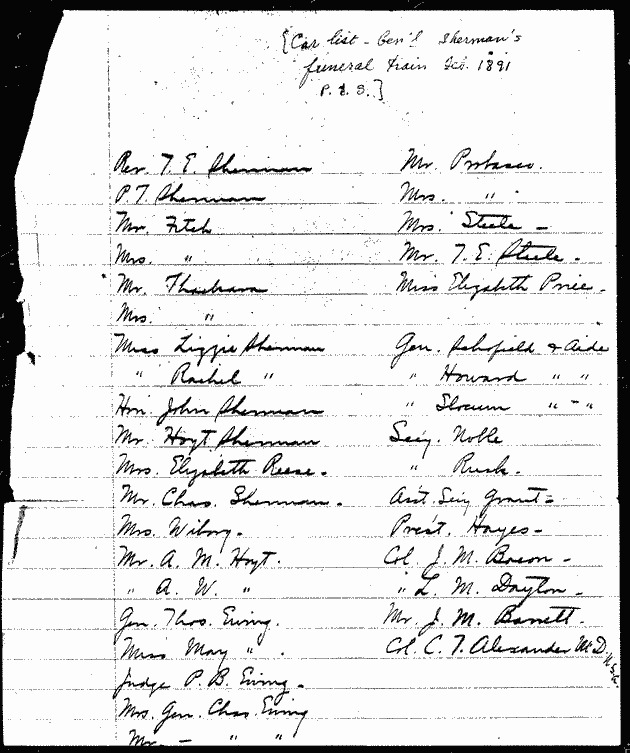 [Car list - Gen'l Sherman's
funeral train Feb. 1891
P. T. S.]
Rev. T. E. Sherman
P. T. Sherman
Mr. Fitch
Mrs. "
Mr. Thackara
Mrs. "
Miss Lizzie Sherman
" Rachel "
Hon John Sherman
Mr. Hoyt Sherman
Mrs. Elizabeth Reese.
Mr. Chas. Sherman.
Mrs. Wiborg.
Mr. A. M. Hoyt.
" A. W. "
Gen. Thos. Ewing.
Miss May " .
Judge P. B. Ewing.
Mrs. Gen. Chas. Ewing
Mr. - " "
Mr. Probasco.
Mrs. "
Mrs. Steele -
Mr. T. E. Steele -
Miss Elizabeth Price.
Gen. Schofield & Aide
" Howard " "
" Slocum " - "
Secy. Noble
" Rusk.
Ass't. Secy Grant -
Prest. Hayes -
Col. J. M. Bacon -
" L. M. Dayton -
Mr. J. M. Barrett.
Col. C. T. Alexander M.D.